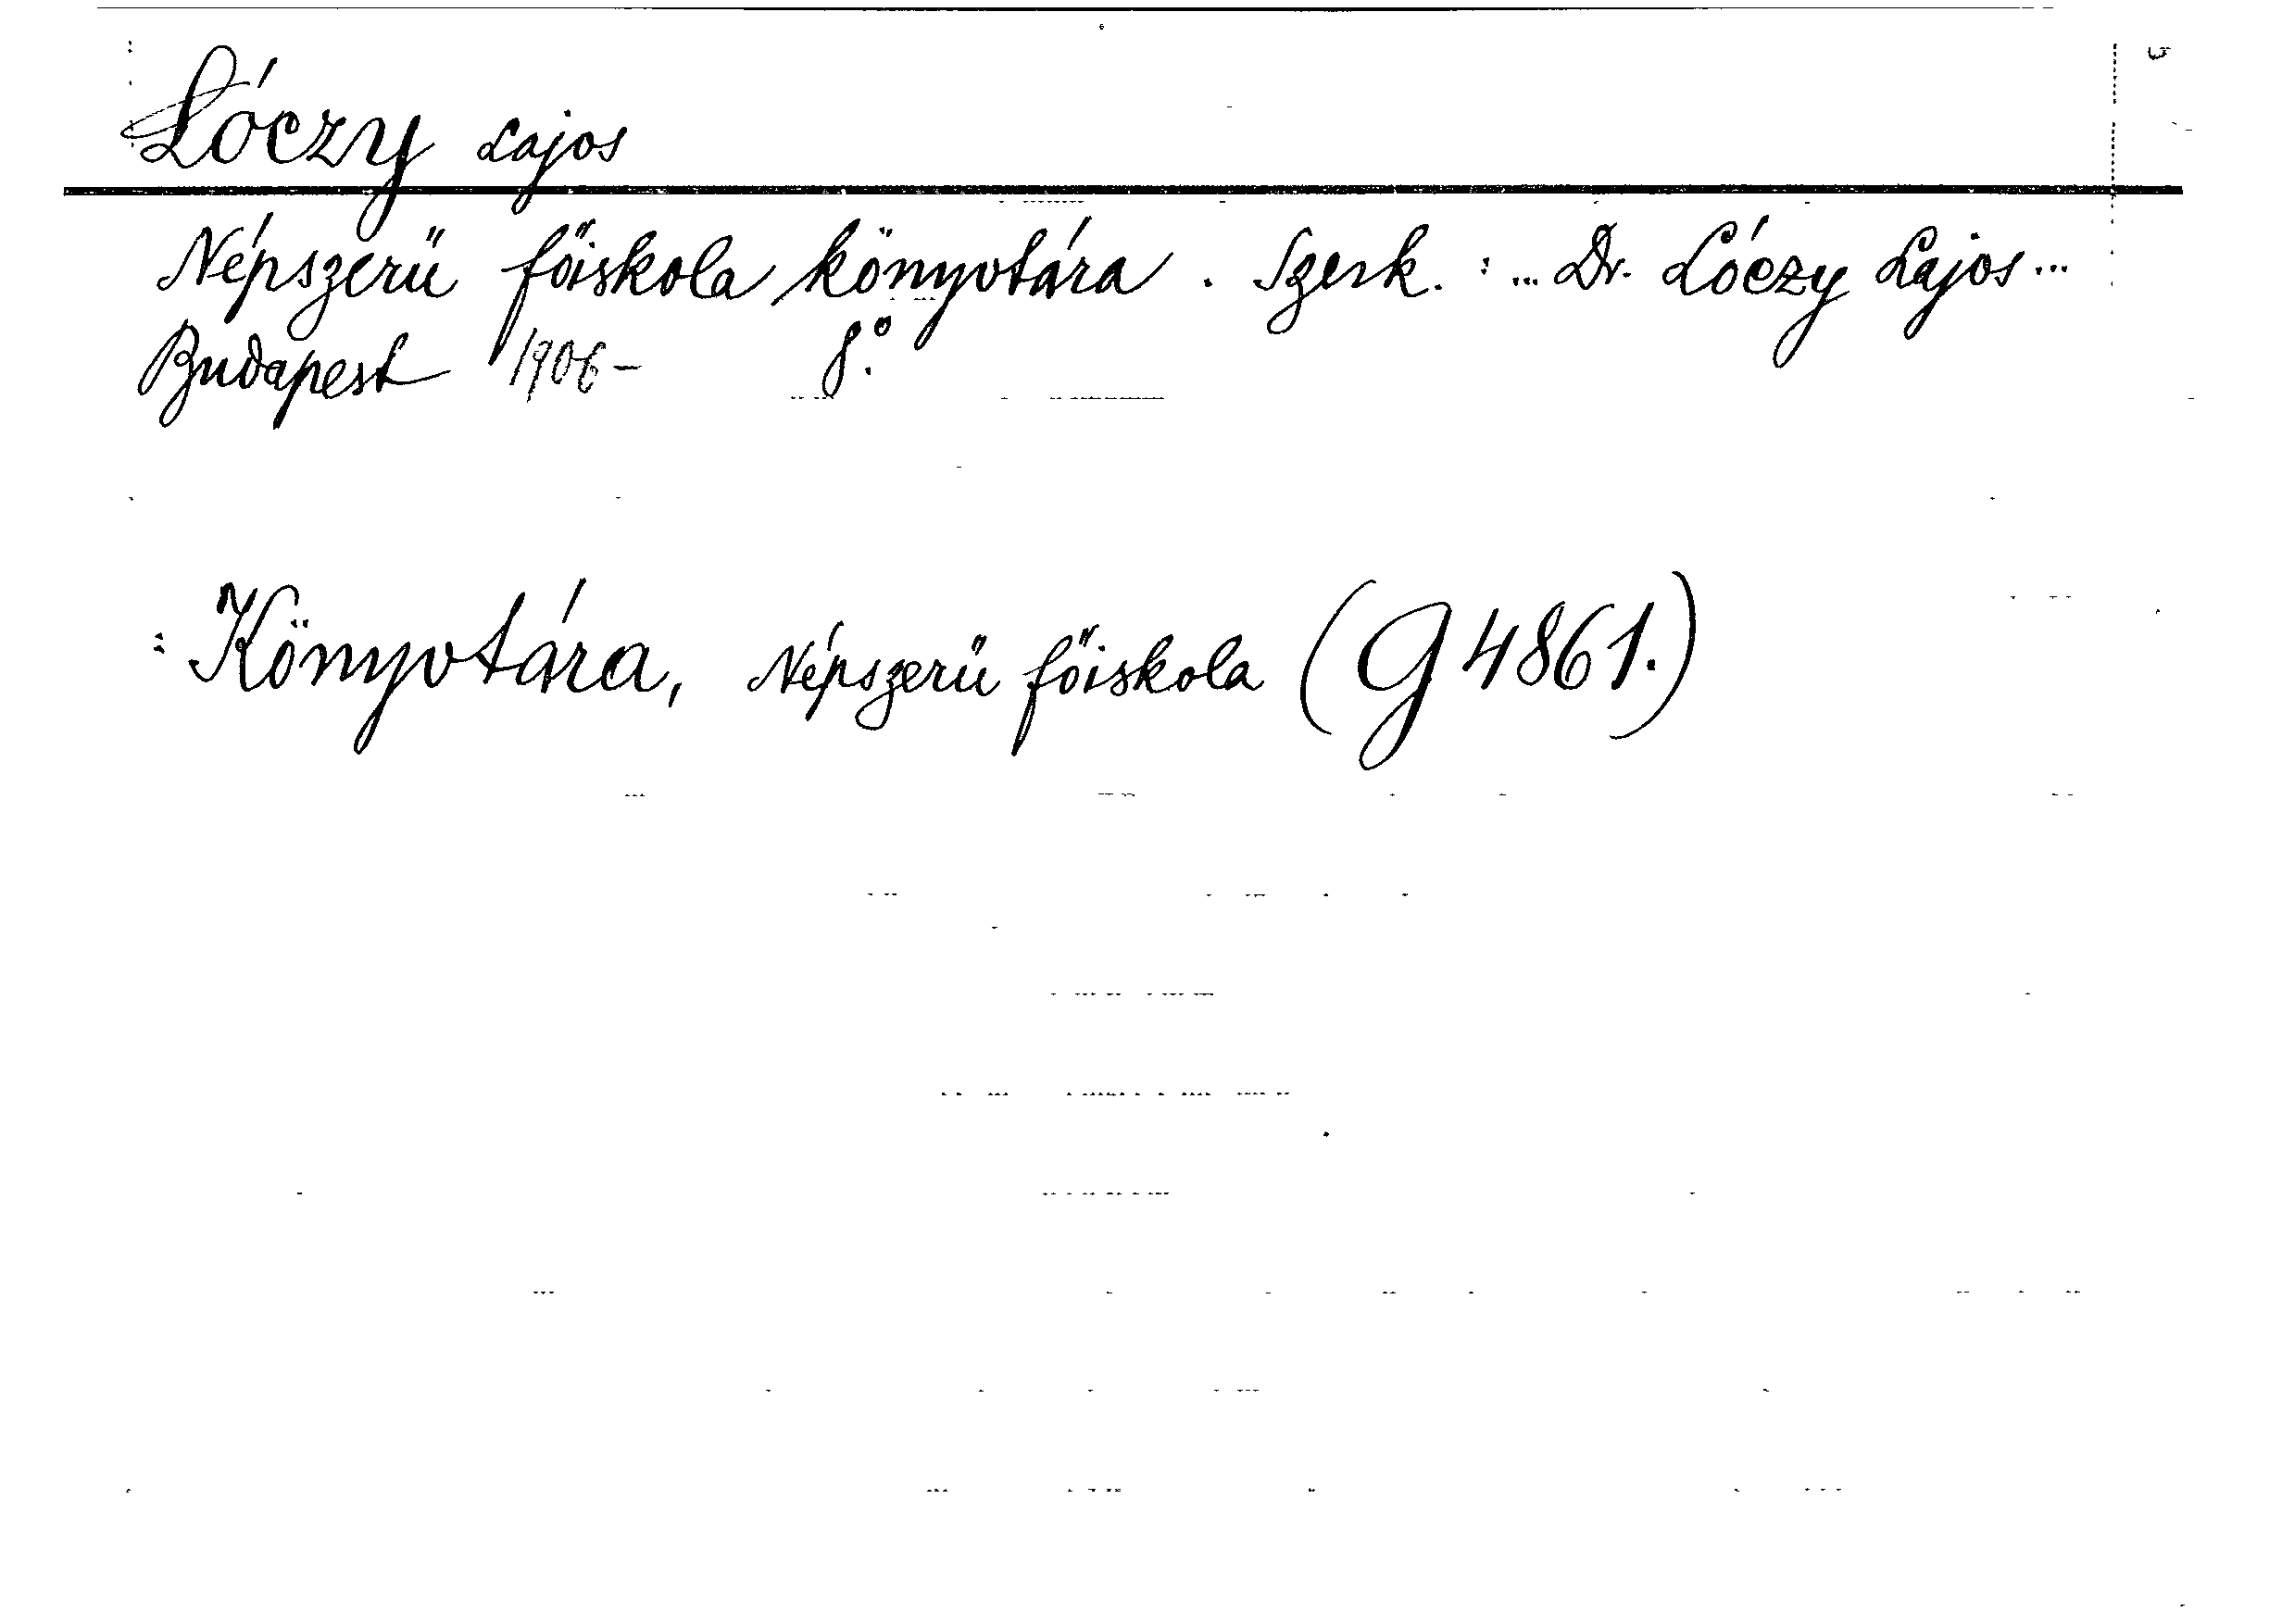 Lóczy Lajos
Népszerű főiskola könyvtára. Szerk.: ... Dr. Lóczy Lajos ...
Budapest 1906- 8°.
: Könyvtára, Népszerű főiskola (G 4861.)